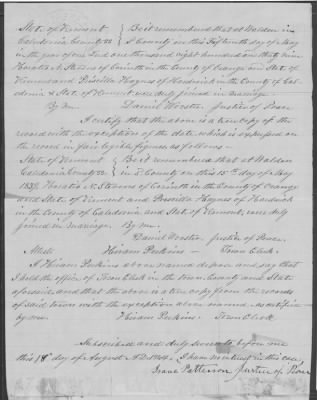 State of Vermont } Be it remembered that at Walden in
Caledonia County ss } S. County on this Fifteenth day of May
in the year of our Lord one thousand eight hundred and thirty nine
Horatio N. Stevens of Corinth in the County of Orange and State of
Vermont and Priscilla Haynes of Hardwick in the County of Cal-
edonia & State of Vermont were duly joined in marriage
By me Daniel Wooster Justice of Peace
I certify that the above is a true copy of the
record with the exception of the date which is expressed on
the record in fair legible figures as follows -
State of Vermont } Be it remembered that at Walden
Caledonia County ss. } in S. County on this 15th day of May
1839. Horatio N. Stevens of Corinth in the County of Orange
and State of Vermont and Priscilla Haynes of Hardwick
in the County of Caledonia and State of Vermont, were duly
joined in marriage. By me.
Daniel Wooster Justice of Peace.
Attest Hiram Perkins - Town Clerk.
I Hiram Perkins above named depose and say that
I hold the office of Town Clerk in the town, County and State
aforesaid and that the above is a true copy from the records
of said town with the exception above named - as certified
by me. Hiram Perkins. Town Clerk
Subscribed and duly sworn to before me
this 18 day of August A.D. 1864. I have no interest in this case,
Isaac Patterson Justice of Peace